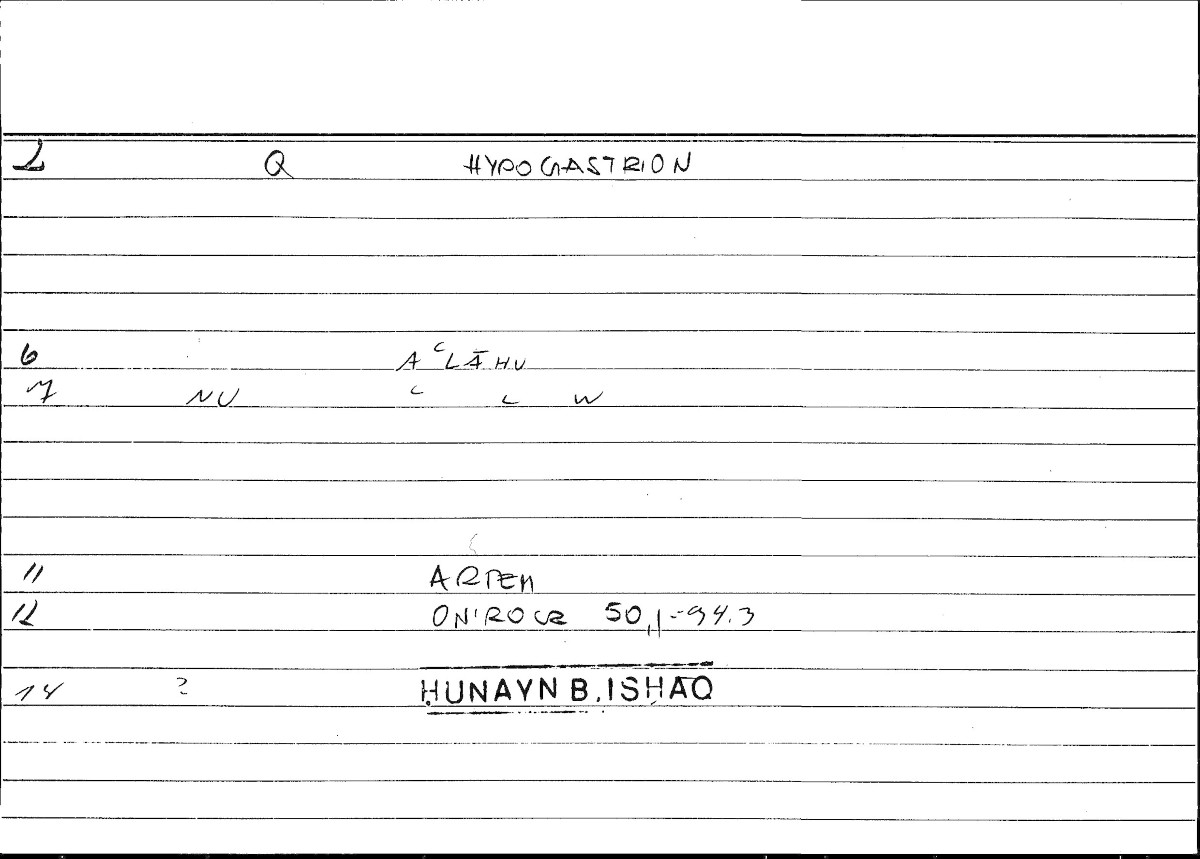 2 Q HYPOGASTRION
6 AʿLĀHU
7 NU ʿ L W
11 ARTEM
12 ONIROCR 50,1-94.3
14 ? ḤUNAYN B. ISḤĀQ